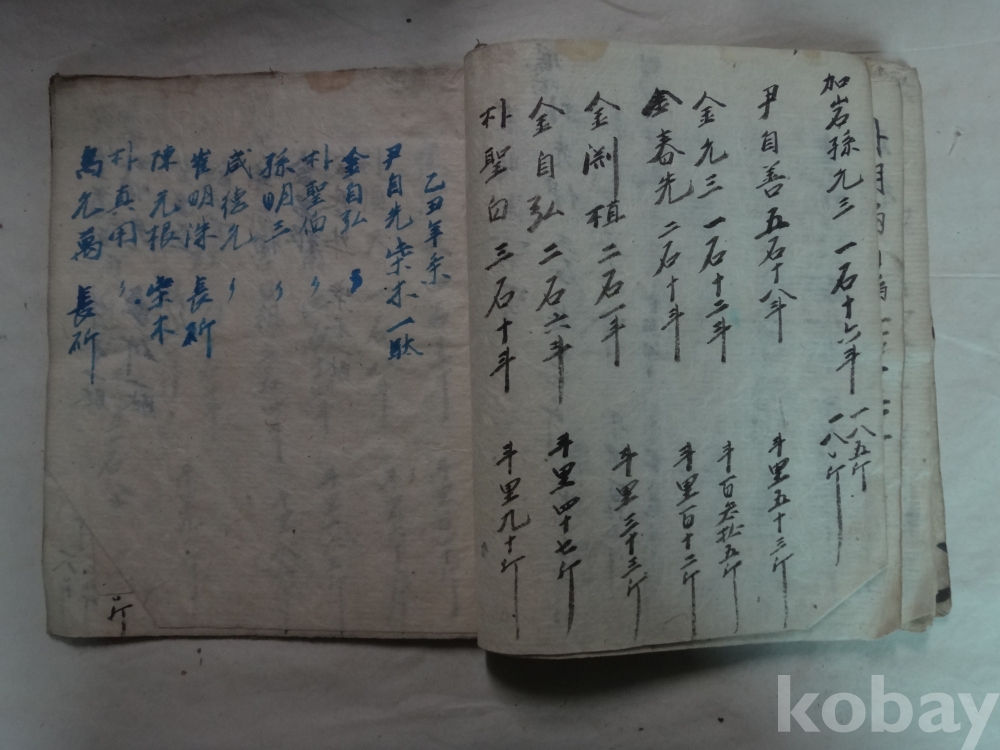 加岩孫九三 一石十六斗 一八五斤
一八八斤
尹自善 五石十八斗 斗里五十三斤
金九三 一石十二斗 斗百叁拾五斤
金春先 二石十斗 斗里百十二斤
金渕植 二石一斗 斗里三十三斤
金自弘 二石六斗 斗里四十七斤
朴聖白 三石十斗 斗里九十斤
乙丑年条
尹自先 柴木一駄
金自弘 〃
朴聖伯 〃
孫明三 〃
咸德元 〃
崔明洙 長斫
陳元根 柴木
朴真用 〃
禹元萬 長斫
斤
kobay